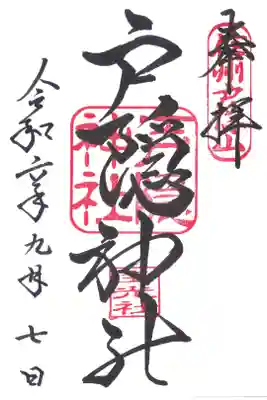 奉拝
戸隠神社
令和六年九月七日